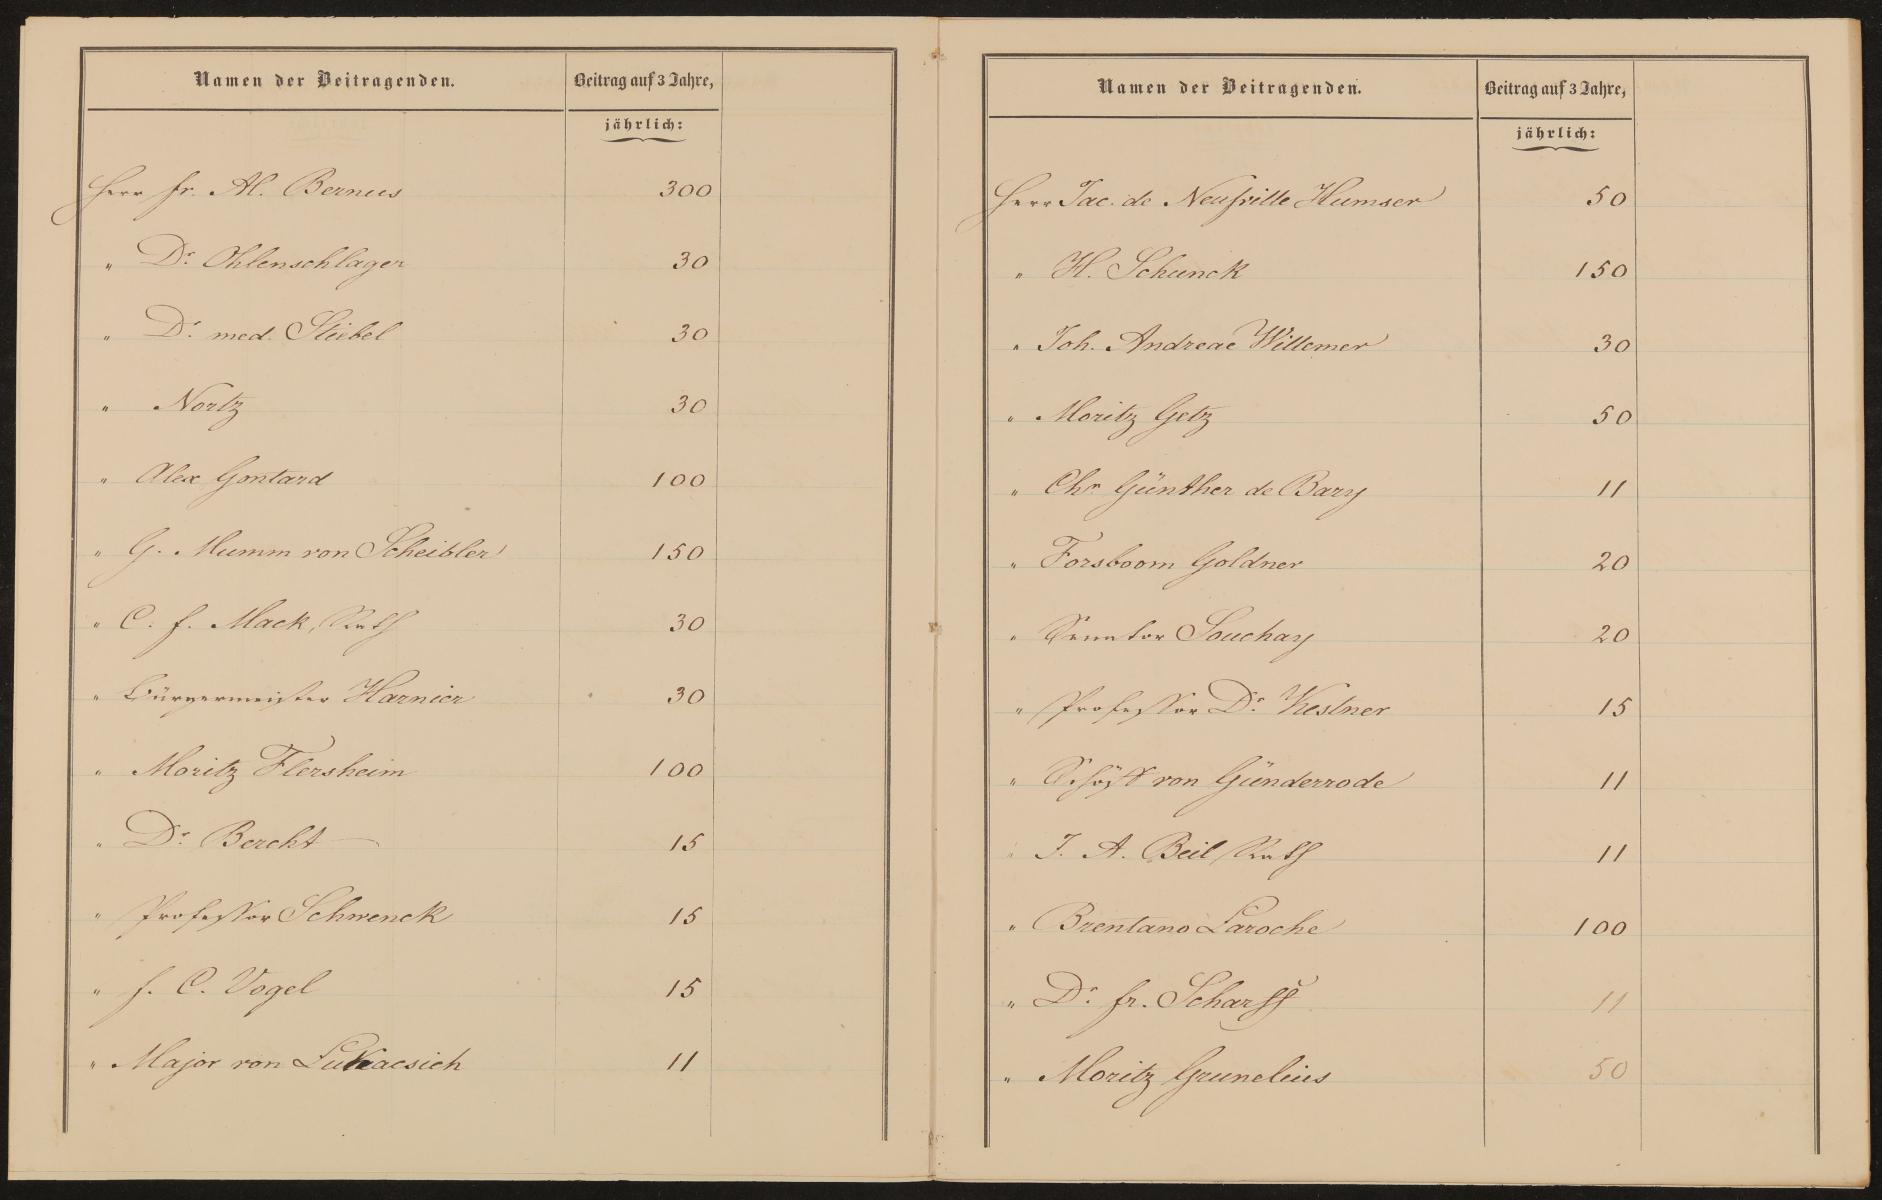 Namen der Beitragenden.
Beitrag auf 3 Jahre,
jährlich:
Herr Fr. Al. Bernus 300
" Dr. Ohlenschlager 30
" Dr. med. Stiebel 30
" Nortz 30
" Alex Gontard 100
" G. Mumm von Scheibler 150
" C. F. Mack, Rath 30
" Bürgermeister Harnier 30
" Moritz Flersheim 100
" Dr. Bercht — 15
" Professor Schwenck 15
" F. C. Vogel 15
" Major von Lukacsich 11
Namen der Beitragenden.
Beitrag auf 3 Jahre,
jährlich:
Herr Jac. de Neufville Humser 50
" H. Schunck 150
" Joh. Andreae Willemer 30
" Moritz Getz 50
" Chr. Günther de Bary 11
" Forsboom Goldner 20
" Senator Souchay 20
" Professor Dr. Kestner 15
" Schöff von Günderrode 11
" J. A. Beil, Rath 11
" Brentano Laroche 100
" Dr. Fr. Scharff 11
" Moritz Grunelius 50